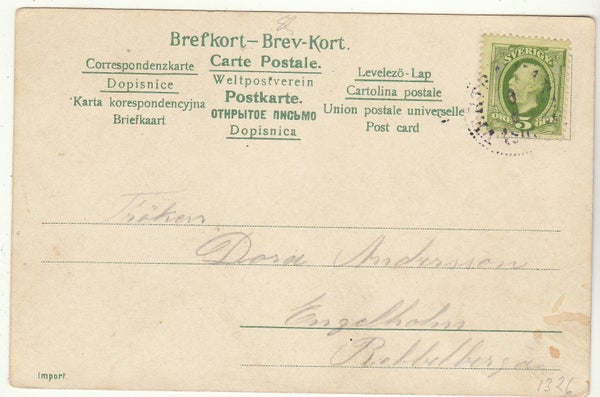 Brefkort – Brev-Kort.
Correspondenzkarte
Carte Postale.
Levelező-Lap
Dopisnice
Weltpostverein
Cartolina postale
Karta korespondencyjna
Postkarte.
Union postale universelle
Briefkaart
ОТКРЫТОЕ ПИСЬМО
Post card
Dopisnica
SVERIGE
5
ÖRE
Fröken
Dora Andersson
Engelholm
Import.
1326